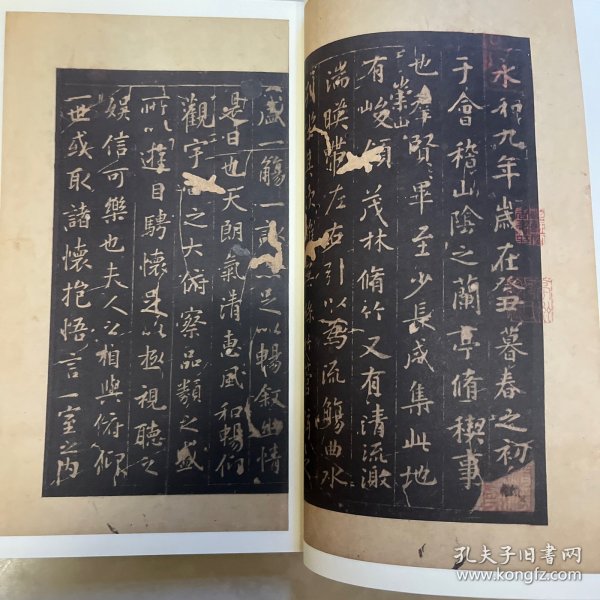 永和九年歲在癸丑暮春之初
于會稽山陰之蘭亭脩稧事
也羣賢畢至少長咸集此地
有崇山峻領茂林脩竹又有清流激
湍暎帶左右引以為流觴曲水
盛一觴一詠足以暢敘幽情
是日也天朗氣清惠風和暢仰
觀宇之大俯察品類之盛
所以遊目騁懷足以極視聽之
娛信可樂也夫人之相與俯仰
一世或取諸懷抱悟言一室之內
孔夫子旧书网
www.kongfz.com